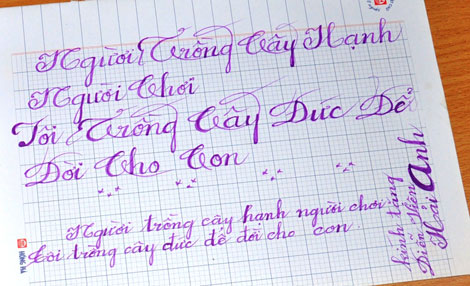 Người Trồng Cây Hạnh
Người Chơi
Tôi Trồng Cây Đức Để
Đời Cho Con
Người trồng cây hạnh người chơi
Tôi trồng cây đức để đời cho con.
kính tặng
Diễn Viên
Hải Anh
HỒNG HÀ